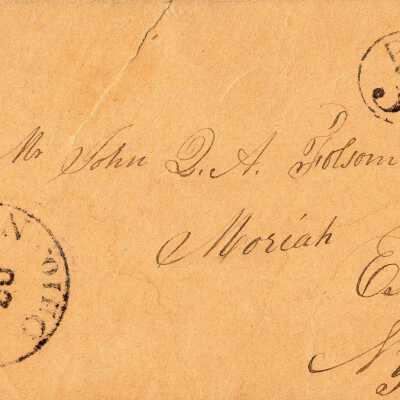 Mr John Q. A. Folsom
Moriah
E
N
OHIO